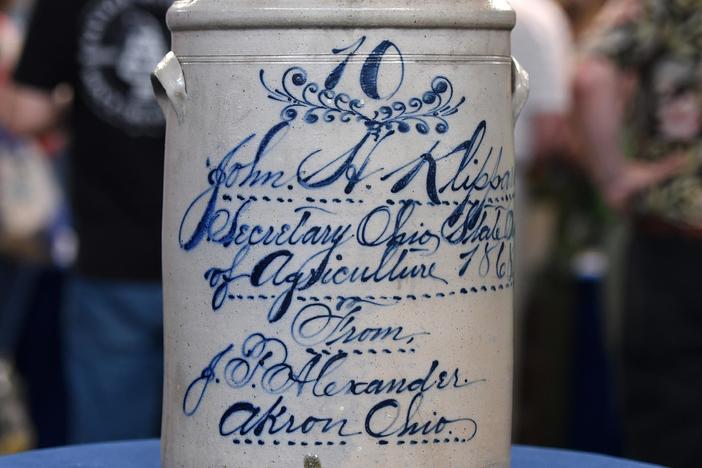 10
John. H. Klippa
Secretary Ohio State
of Agriculture 186
From.
J. P. Alexander.
Akron Ohio.